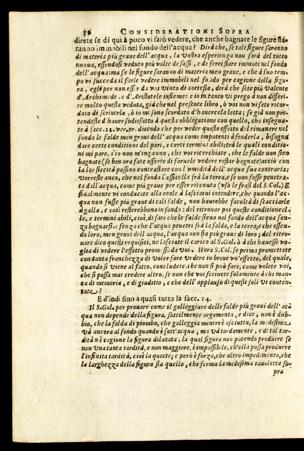 36 CONSIDERATIONI SOPRA
direte se di quì à poco vi farò vedere, che anche bagnate le figure stian
tanno immobili nel fondo dell'acqua? Dirà che, se tali figure saranno
di materia più graue dell'acqua, la vostra esperienza non sarà del tutto
nuoua, essendosi veduto più volte
dell'acqua: ma se le figure saranno di materia men graue, e che à suo tem
po vi succeda il farle vedere immobili nel fondo per cagione della figu
ra, egli per non esser da voi vinto di cortesia, dirà che siete più valente
d'Archimede, e d'Aristotele insieme: e io in tanto vi prego à non differi
re molto questa veduta, già che nel presente libro, ò voi non vi sete ricor
dato di scriuerla, ò io mi sono scordato d'hauerla letta; se già non pre-
tendeste d'hauer sodisfatto à questa obligazione con quello, che insegna-
te à facc. 23. ver. 27. dicendo che per veder questo effetto del rimaner nel
fondo le falde men graui dell'acqua come impotenti à fenderla, bisogna
dare certe condizioni del pari, e certi termini abili
mi pare, s'io non m'inganno, che voi ricerchiate, che le falde non sieno
bagnate (se ben ora fate offerte di farucle vedere restar bagnate) acciò con
la lor siccità possino contrastare con l'vmidità dell'acqua sua contraria:
Vorreste anco, che nel fondo la siccità fosse la terra,
ti dell'acqua, come più graue per esser ritenuta (vso le frasi del S. Col.) E
finalmente vi conducete alla reale à lasciarui intendere, che quando l'ac
qua non fusse più graue di tali falde, non haurebbe facoltà di scacciarle
à galla, e così resterebbono in fondo: del ritrouar poi queste condizioni a-
li, e termini abili, cioè, di fare che le falde sieno nel fondo dell'acqua sen-
za bagnarsi, e senza che l'acqua penetri frà la falda, e la terra, e che essen
do loro, men graui dell'acqua, l'acqua non sia più graue di loro; del ritro-
uare dico questi requisiti, ne lasciate il carico al S. Gal. ò à chi hauesse vo-
glia di vedere l'effetto promesso da voi. Hora S. Col. se prima prometteste
con tanta franchezza di voler fare vedere in breue vn'effetto, del quale,
quando si viene al fatto, concludete che non si può fare, come volete voi,
che si possa mai credere altro, se non che voi scriuiate solamente à lo mā co
di memoria, e di giudizio, e che dell'applauso di questi soli vi conten-
tate?
E d'indi sino a quasi tutta la facc. 24.
Il S. Gal. per prouare come il galleggiare delle falde più graui dell'ac
qua non depende della figura, sottilmente argomenta, e dice, non è dub-
bio, che la falda di piombo, che galleggia mentre è asciutta, la medesima
Và ancora al fondo quando è sott'acqua, ma và tardamente, e di tal tar
dità n'è cagione la figura dilatata, la qual figura non potendo produrre se
non vna tanta tardità, e non maggiore, è impossibile, ch'ella possa produrre
l'infinita tardità, cioè la quiete; e però è forza, che altro impedimento, che
la larghezza della figura sia quello, che ferma la medesima tauoletta so-
pra